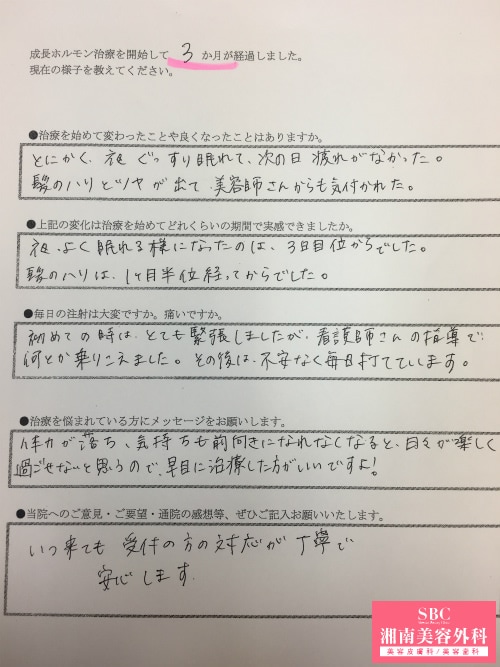 成長ホルモン治療を開始して 3 か月が経過しました。
現在の様子を教えてください。
●治療を始めて変わったことや良くなったことはありますか。
とにかく、夜 ぐっすり眠れて、次の日 疲れがなかった。
髪のハリとツヤが出て、美容師さんからも気付かれた。
●上記の変化は治療を始めてどれくらいの期間で実感できましたか。
夜、よく眠れる様になったのは、3日目位からでした。
髪のハリは、1ヶ月半位経ってからでした。
●毎日の注射は大変ですか。痛いですか。
初めての時は、とても緊張しましたが、看護師さんの指導で
何とか乗りこえました。その後は、不安なく毎日打てています。
●治療を悩まれている方にメッセージをお願いします。
体力が落ち、気持ちも前向きになれなくなると、日々が楽しく
過ごせないと思うので、早目に治療した方がいいですよ!
●当院へのご意見・ご要望・通院の感想等、ぜひご記入お願いいたします。
いつ来ても 受付の方の対応が丁寧で
安心します
SBC
湘南美容外科
美容皮膚科/美容歯科